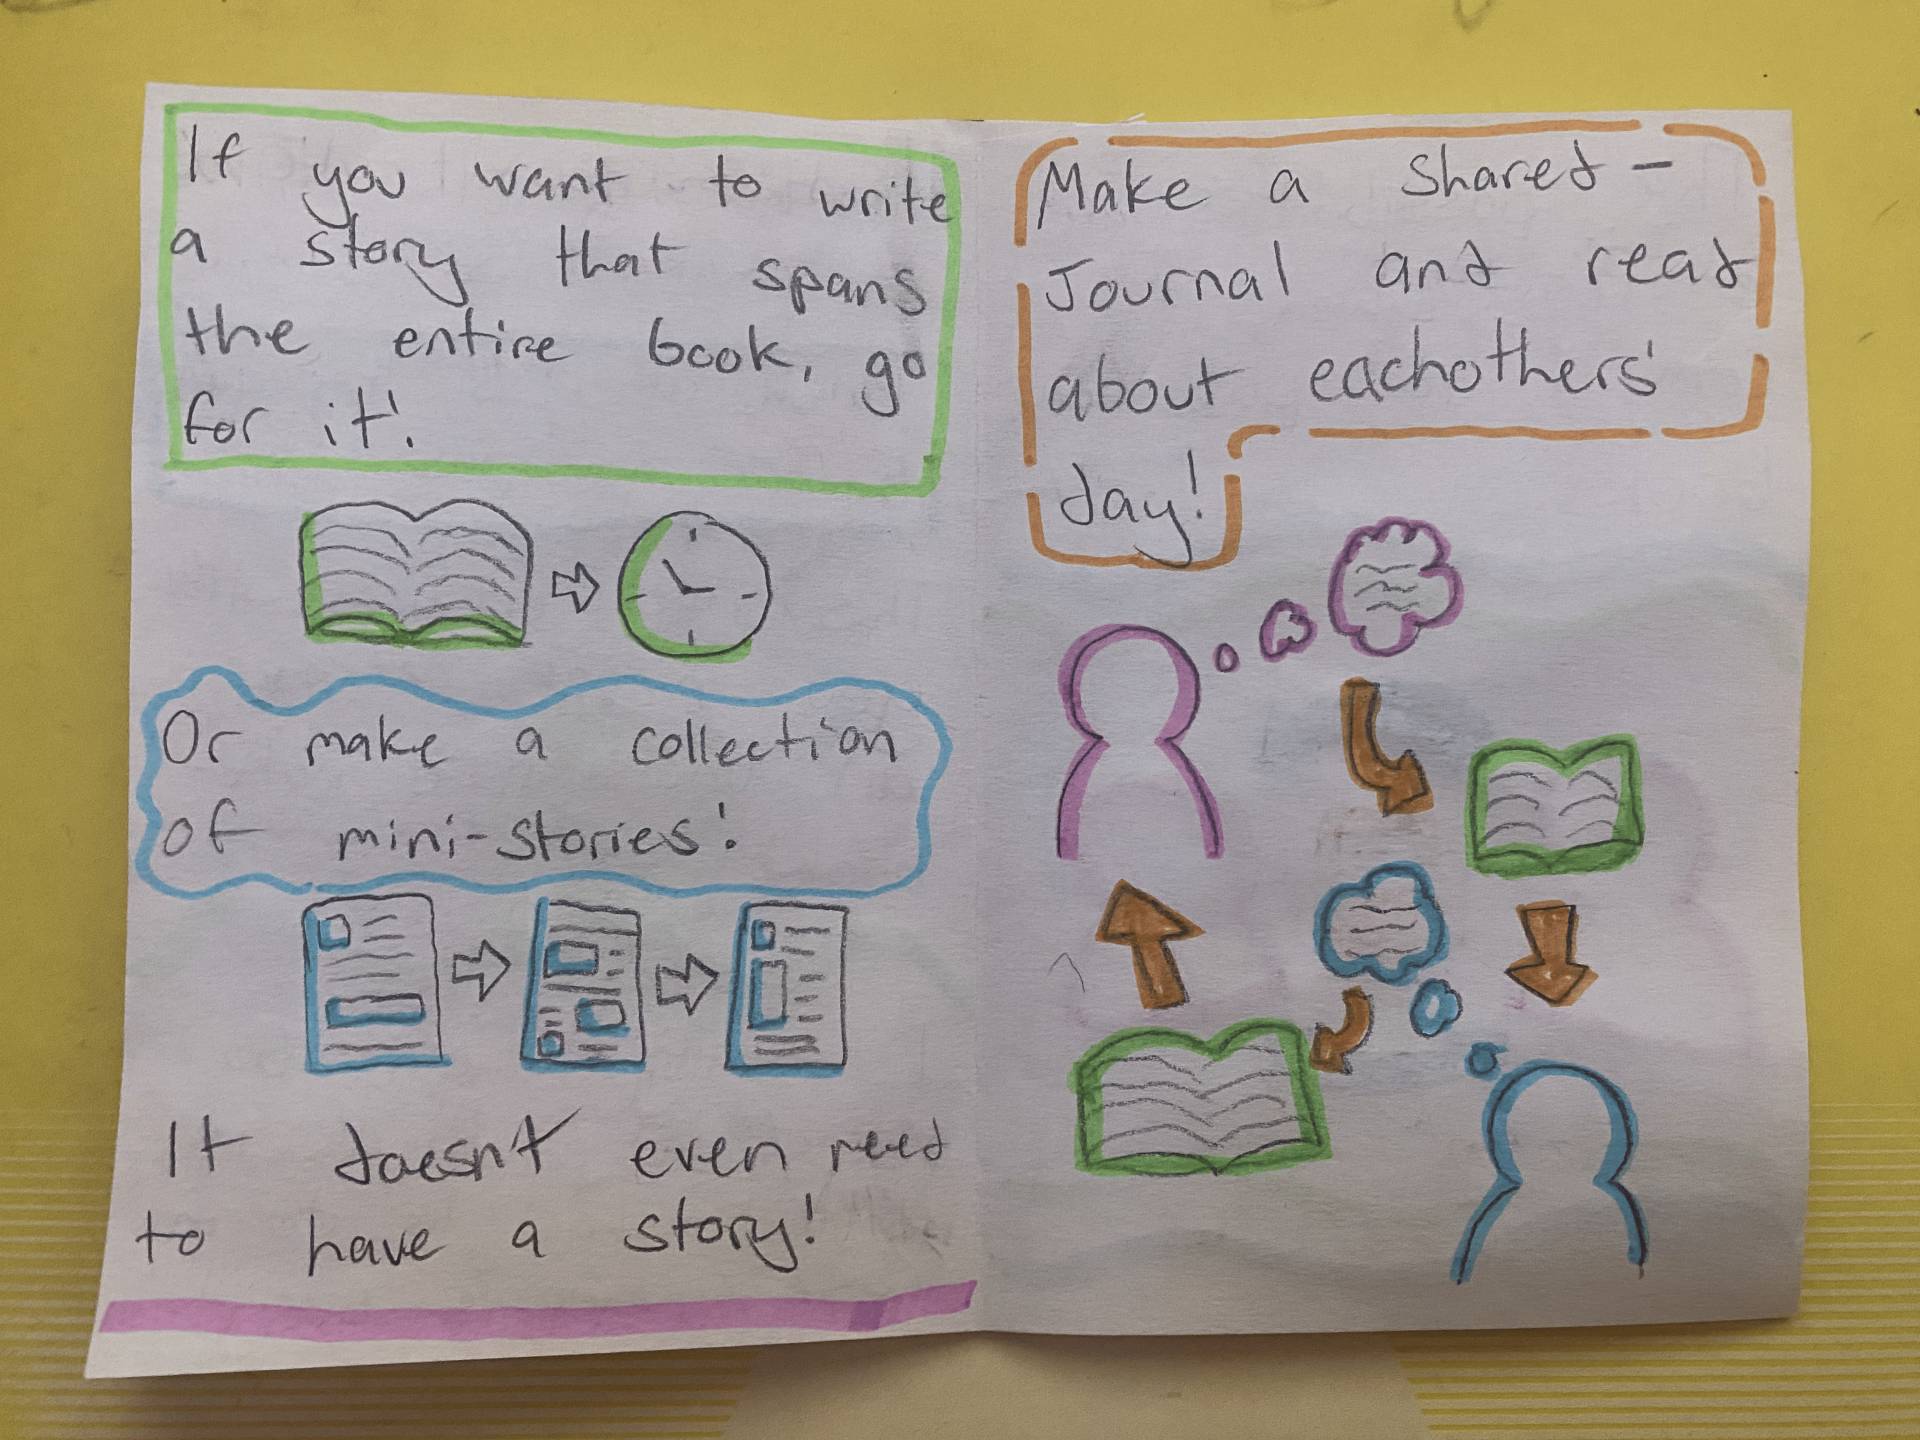 If you want to write
a story that spans
the entire book, go
for it!
Or make a collection
of mini-stories!
It doesn't even need
to have a story!
Make a shared-
Journal and read
about eachothers'
day!